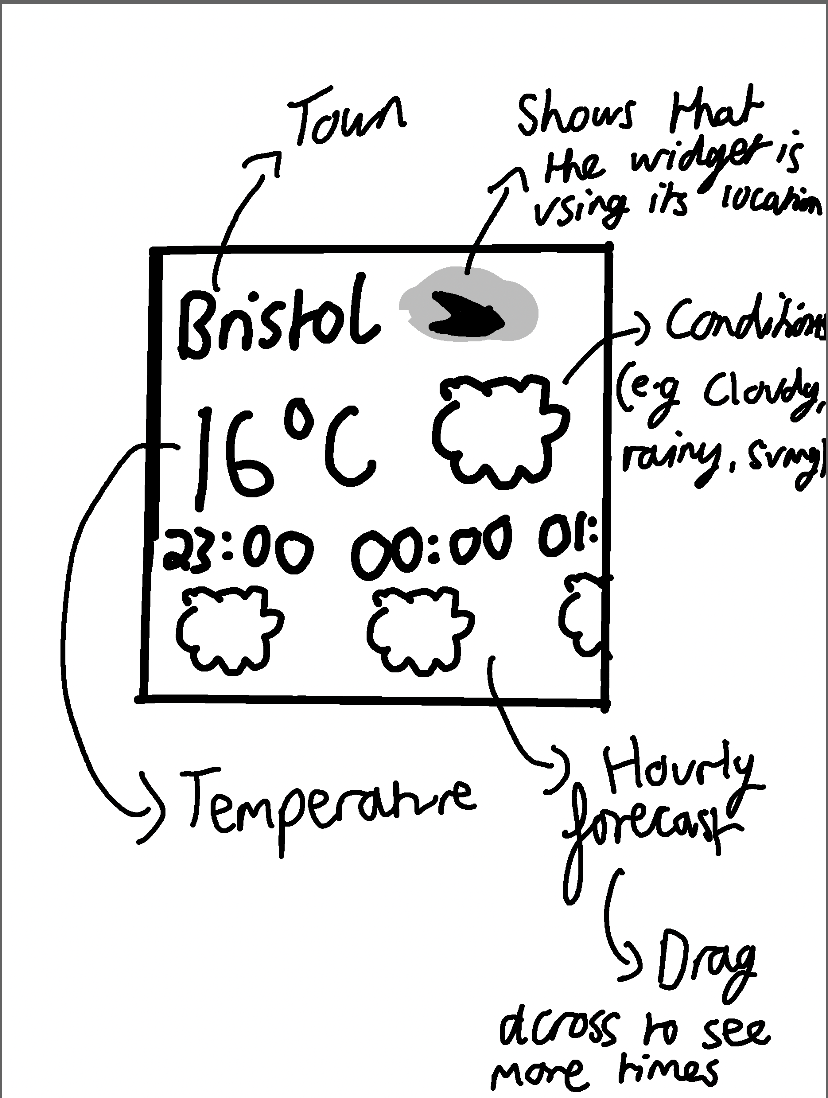 Town
Shows that
the widget is
using its location
Bristol
Conditions
(e.g Cloudy,
rainy, sunny)
16°C
23:00 00:00 01:
Temperature
Hourly
forecast
Drag
across to see
more times